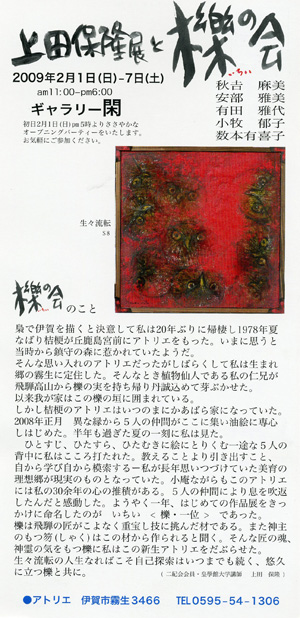 上田保隆展と櫟の会
いちい
2009年2月1日(日)-7日(土)
am11:00-pm6:00
ギャラリー閑
初日2月1日(日)pm5時よりささやかな
オープニングパーティーをいたします。
お気軽にご参加ください。
秋吉 麻美
安部 雅美
有田 雅代
小牧 郁子
数本有喜子
生々流転
S8
櫟の会のこと
梟で伊賀を描くと決意して私は20年ぶりに帰棲し1978年夏
なばり桔梗が丘鹿島宮前にアトリエをもった。いまに思うと
当時から鎮守の森に惹かれていたようだ。
そんな思い入れのアトリエだったがしばらくして私は生まれ
郷の霧生に定住した。そんなとき植物仙人である私の仁兄が
飛騨高山から櫟の実を持ち帰り丹誠込めて芽ぶかせた。
以来我が家はこの櫟の垣に囲まれている。
しかし桔梗のアトリエはいつのまにかあばら家になっていた。
2008年正月 異な縁から5人の仲間がここに集い油絵に専心
しはじめた。半年も過ぎた夏の一刻に私は見た。
ひとすじ、ひたすら、ひたむきに絵にとりくむ一途な5人の
背中に私はこころ打たれた。教えることより引き出すこと、
自から学び自から模索する－私が長年思いつづけていた美育の
理想郷が現実のものとなっていた。小庵ながらもこのアトリエ
には私の30余年の心の推積がある。5人の仲間により息を吹返
したんだと感動した。ようやく一年、はじめての作品展をきっ
かけに命名したのが いちい ＜櫟・一位＞ であった。
櫟は飛騨の匠がこよなく重宝し技に挑んだ材である。また神主
のもつ笏(しゃく)はこの材から作られると聞く。そんな匠の魂、
神霊の気をもつ櫟に私はこの新生アトリエをだぶらせた。
生々流転の人生なればこそ自己探求はいつまでも続く、悠久
に立つ櫟と共に。
(二紀会会員・皇學館大学講師 上田 保隆)
●アトリエ 伊賀市霧生3466 TEL0595-54-1306